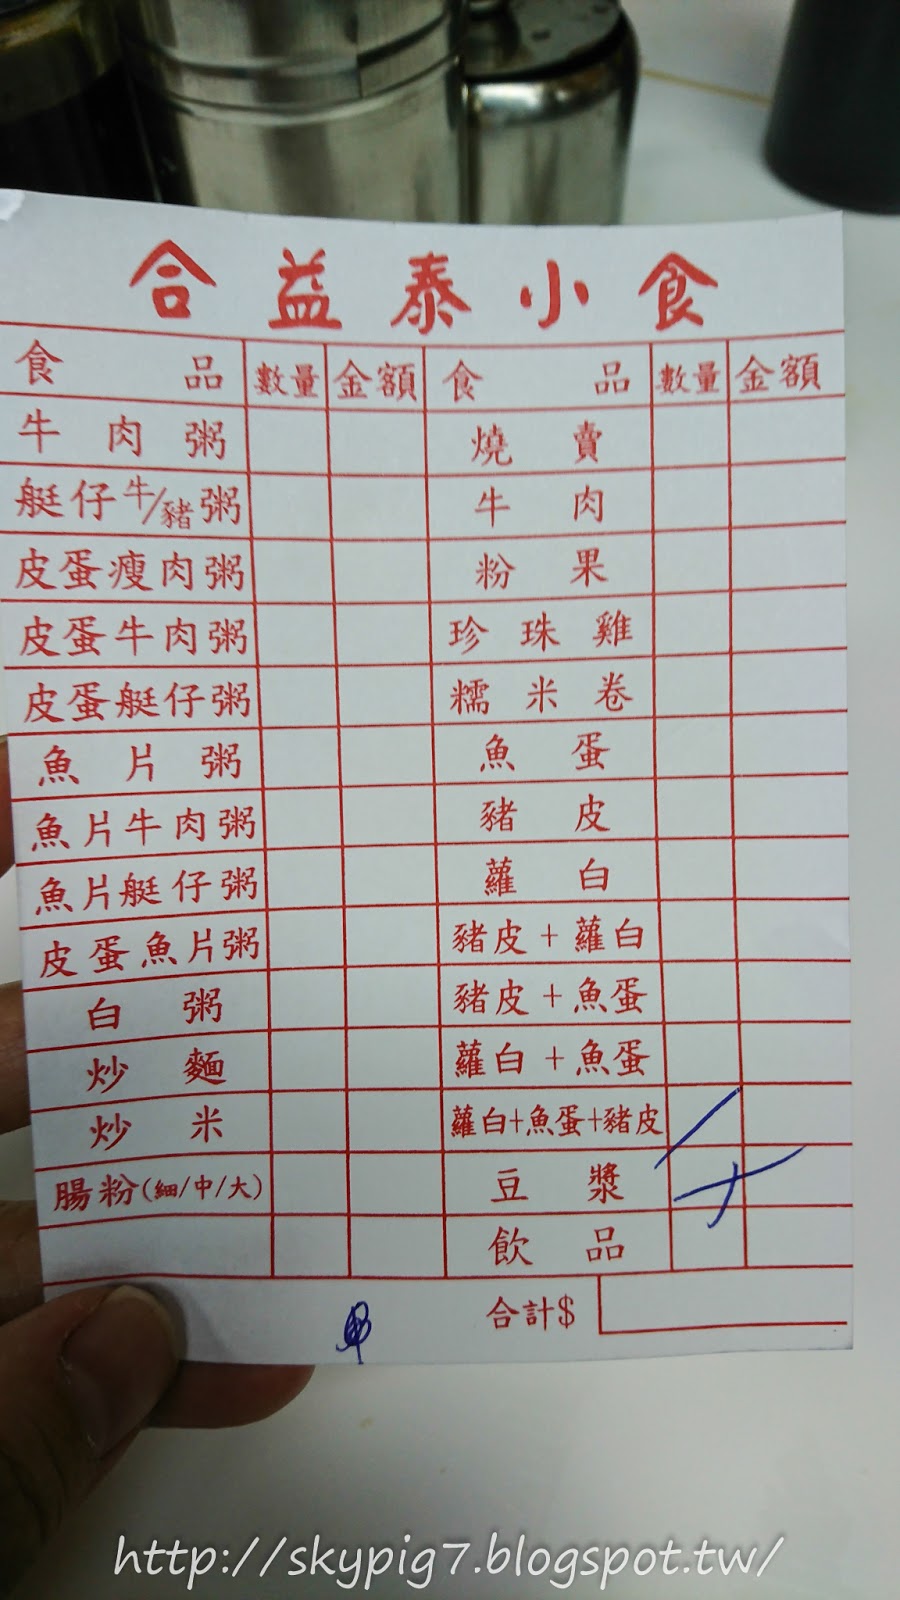 合益泰小食
食品 數量 金額 食品 數量 金額
牛肉粥 燒賣
艇仔牛/豬粥 牛肉
皮蛋瘦肉粥 粉果
皮蛋牛肉粥 珍珠雞
皮蛋艇仔粥 糯米卷
魚片粥 魚蛋
魚片牛肉粥 豬皮
魚片艇仔粥 蘿白
皮蛋魚片粥 豬皮+蘿白
白粥 豬皮+魚蛋
炒麵 蘿白+魚蛋
炒米 蘿白+魚蛋+豬皮
腸粉(細/中/大) 豆漿
飲品
合計$
http://skypig7.blogspot.tw/